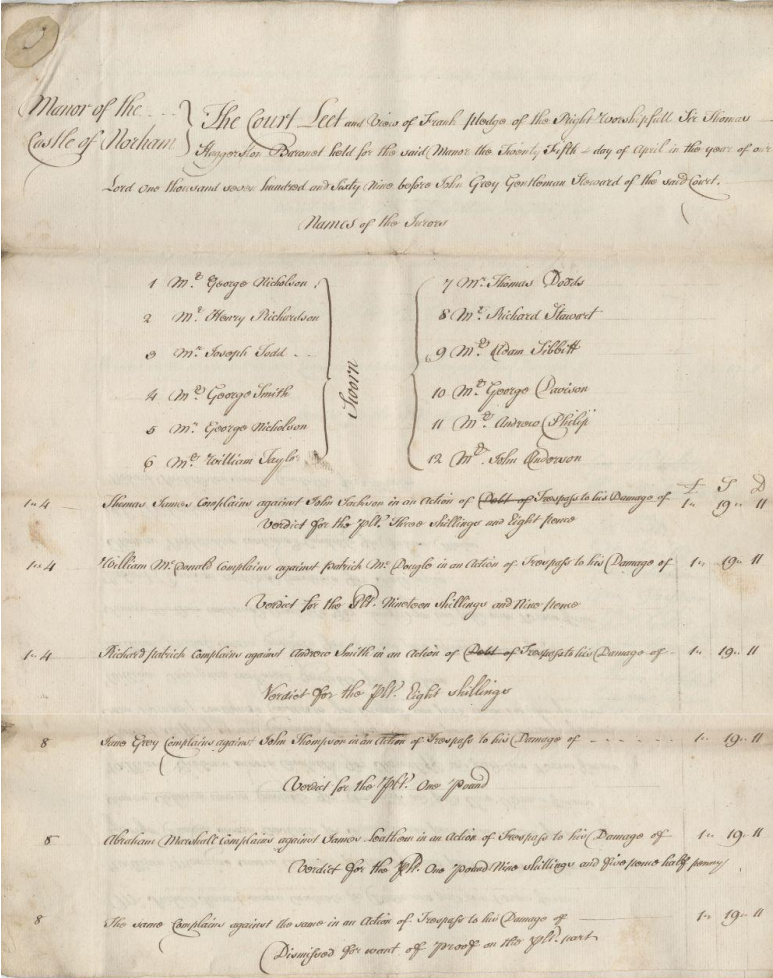 Manor of the
Castle of Norham
The Court Leet and View of Frank pledge of the Right Worshipfull Sir Thomas
Haggerston Baronet held for the said Manor the Twenty Fifth day of April in the year of our
Lord One thousand seven hundred and Sixty Nine before John Grey Gentleman Steward of the said Court.
Names of the Jurors
1 Mr. George Nicholson
2 Mr. Henry Richardson
3 Mr. Joseph Todd
4 Mr. George Smith
5 Mr. George Nicholson
6 Mr. William Taylor
Sworn
7 Mr. Thomas Dodds
8 Mr. Richard Stewart
9 Mr. Adam Sibbitt
10 Mr. George Davison
11 Mr. Andrew Philip
12 Mr. John Anderson
£ S D
1 " 4 Thomas James Complains against John Jackson in an Action of Debt of Trespass to his Damage of 1 " 19 " 11
Verdict for the Plt. Three Shillings and Eight pence
1 " 4 William Mc.Donald Complains against Patrick Mc.Dougle in an Action of Trespass to his Damage of 1 " 19 " 11
Verdict for the Plt. Nineteen Shillings and Nine pence
1 " 4 Richard Patrick Complains against Andrew Smith in an Action of Debt of Trespass to his Damage of 1 " 19 " 11
Verdict for the Plt. Eight Shillings
8 Jane Grey Complains against John Thompson in an Action of Trespass to his Damage of 1 " 19 " 11
Verdict for the Plt. One Pound
8 Abraham Marshall Complains against James in an Action of Trespass to his Damage of 1 " 19 " 11
Verdict for the Plt. One Pound Nine Shillings and five pence half penny
8 The same Complains against the same in an Action of Trespass to his Damage of 1 " 19 " 11
Dismissed for want of Proof on the Plt. part